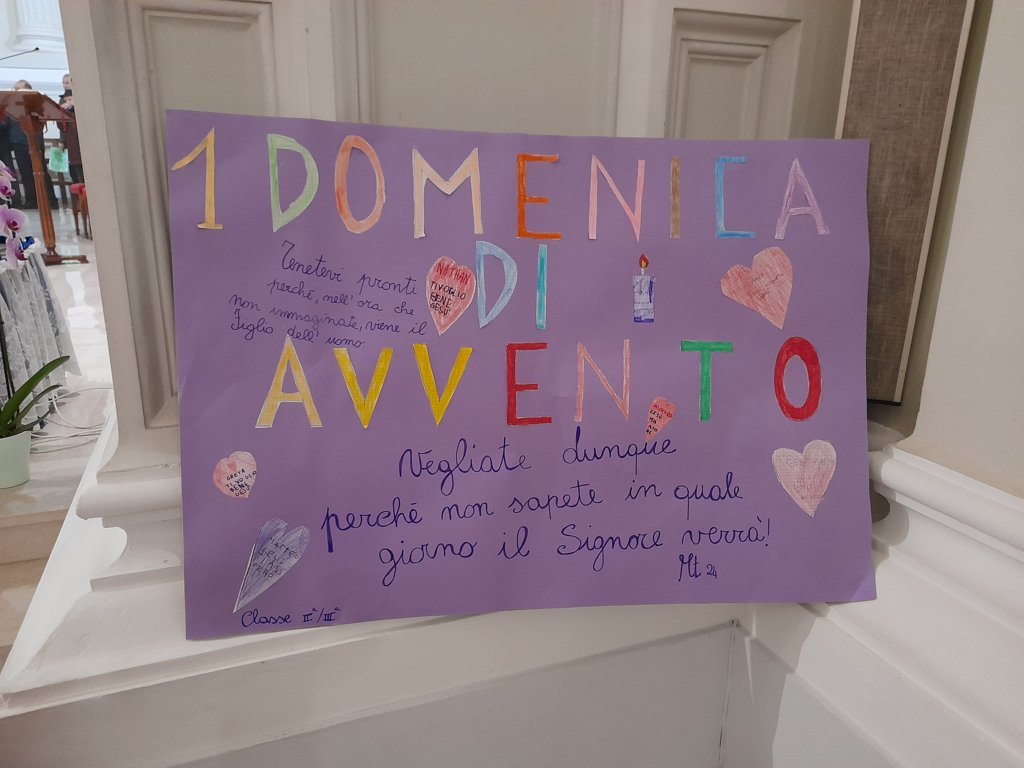 1 DOMENICA
DI
AVVENTO
Tenetevi pronti
perché, nell'ora che
non immaginate, viene il
Figlio dell'uomo
NATHAN
TI VOGLIO
BENE
GESÙ
Vegliate dunque
perché non sapete in quale
giorno il Signore verrà!
Mt 24
Classe II^/III^